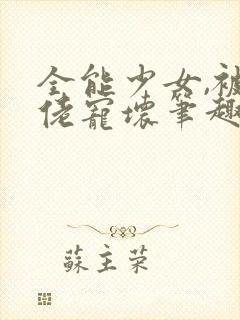 全能少女,被
佬寵壞筆趣
蘇主榮